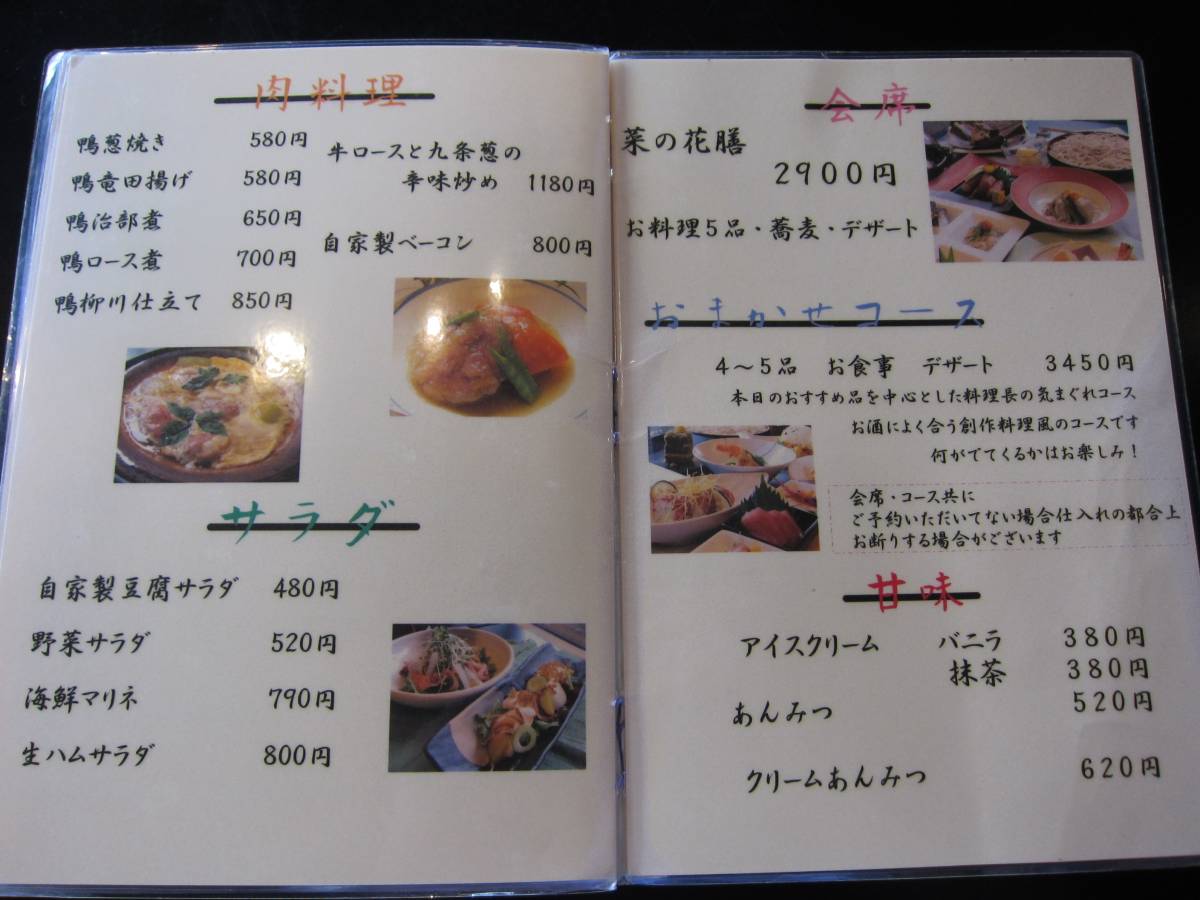 肉料理
鴨葱焼き 580円
鴨竜田揚げ 580円
鴨治部煮 650円
鴨ロース煮 700円
鴨柳川仕立て 850円
牛ロースと九条葱の
辛味炒め 1180円
自家製ベーコン 800円
サラダ
自家製豆腐サラダ 480円
野菜サラダ 520円
海鮮マリネ 790円
生ハムサラダ 800円
会席
菜の花膳
2900円
お料理5品・蕎麦・デザート
おまかせコース
4～5品 お食事 デザート 3450円
本日のおすすめ品を中心とした料理長の気まぐれコース
お酒によく合う創作料理風のコースです
何がでてくるかはお楽しみ！
会席・コース共に
ご予約いただいてない場合仕入れの都合上
お断りする場合がございます
甘味
アイスクリーム バニラ 380円
抹茶 380円
あんみつ 520円
クリームあんみつ 620円